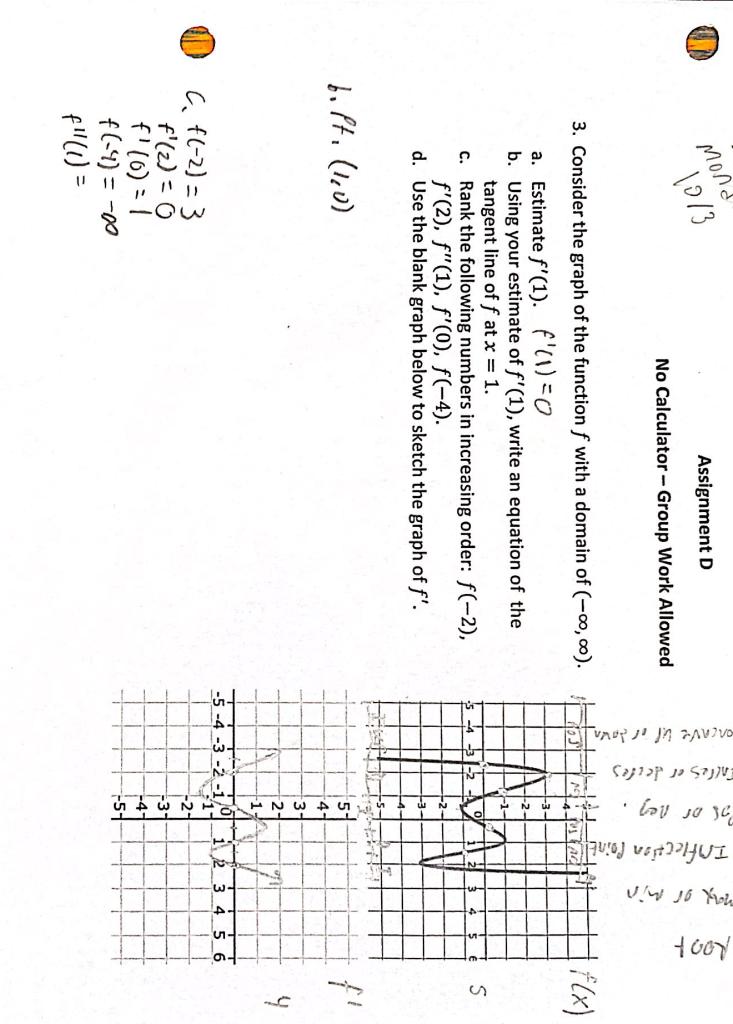 Mond
10/3
Assignment D
No Calculator – Group Work Allowed
3. Consider the graph of the function f with a domain of (−∞, ∞).
a. Estimate f'(1). f'(1) = 0
b. Using your estimate of f'(1), write an equation of the
tangent line of f at x = 1.
c. Rank the following numbers in increasing order: f(−2),
f'(2), f''(1), f'(0), f(−4).
d. Use the blank graph below to sketch the graph of f'.
b. Pt. (1,0)
C. f(-2) = 3
f'(2) = 0
f'(0) = 1
f(-4) = -∞
f''(1) =
Root
max or min
Inflection Point
Pos or neg.
Incres or decres
oncave up or down
f(x)
5
-5 -4 -3 -2 -1 0 1 2 3 4 5 6
f'
4
5
4
3
2
1
-5 -4 -3 -2 -1 0 1 2 3 4 5 6
-1
-2
-3
-4
-5